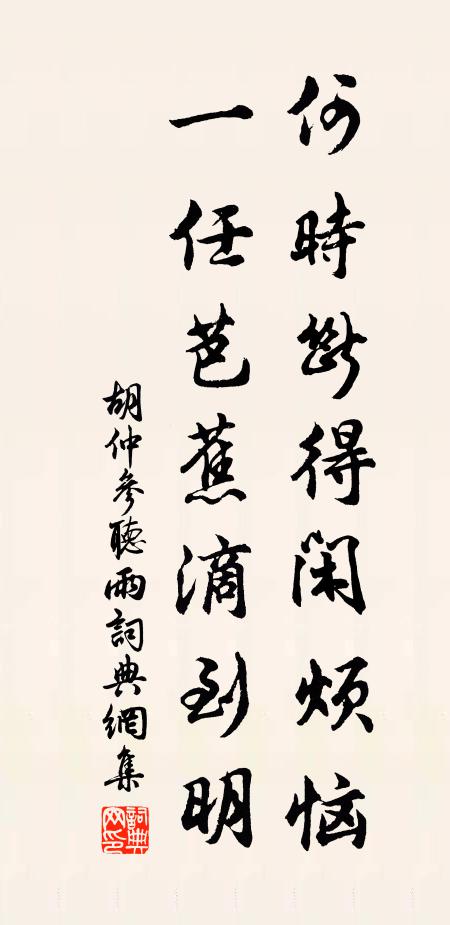 何時斷得閑煩惱
一任芭蕉滴到明
胡仲參聽雨詞典網集
詞典網印